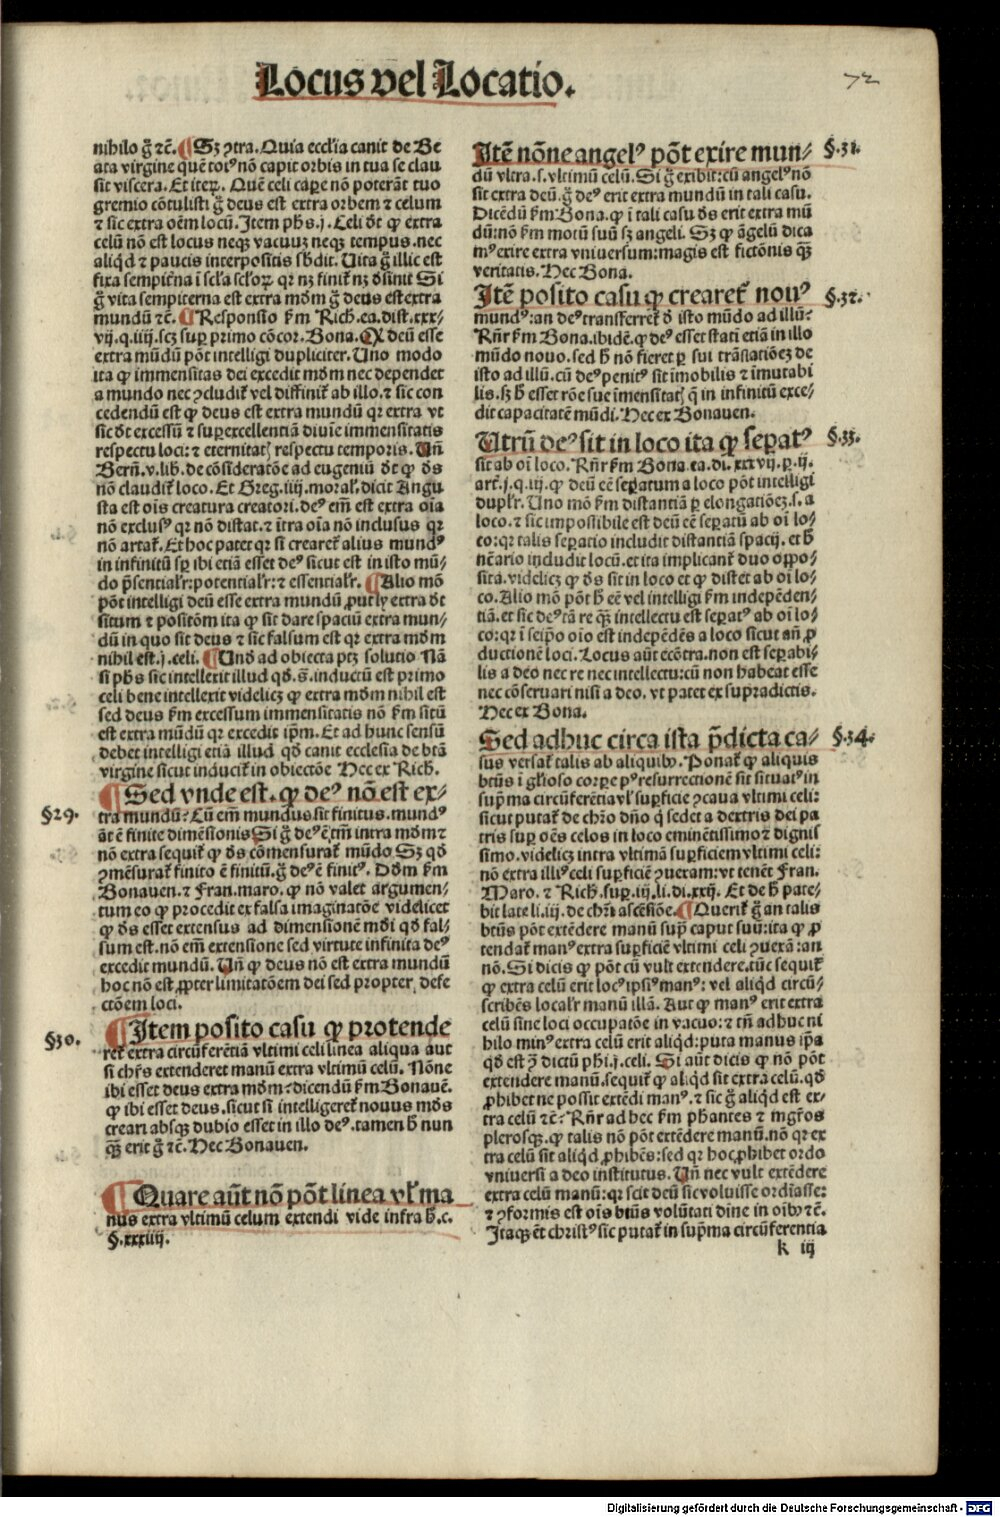 Locus vel Locatio.
72
nihilo g̃ ⁊c̃. ¶ Sꝫ ɔtra. Quia eccl̃ia canit de Be
ata virgine quē totꝰ nō capit orbis in tua se clau
sit viscera. Et iteꝝ. Quē celi caꝑe nō poterāt tuo
gremio cōtulisti g̃ deus est extra orbem ⁊ celum
⁊ sic extra oēm locū. Item ph̃s .j. Celi dt̃ ꝙ extra
celū nō est locus neqꝫ vacuuꝫ neqꝫ tempus. nec
aliqd̃ ⁊ paucis interpositis sb̃dit. Uita g̃ illic est
fixa sempit̃na ī scl̃a scl̃oꝝ qꝛ nꝫ finit̃ nꝫ dsinit Si
g̃ vita sempiterna est extra mdm̃ g̃ deus est extra
mundū ⁊c̃. ¶ Responsio ẜm Rich. ea. dist. xxx-
vij. q. iiij. scꝫ suꝑ primo cōcor. Bona. Ꝙ deū esse
extra mūdū pōt intelligi dupliciter. Uno modo
ita ꝙ immensitas dei excedit mdm̃ nec dependet
a mundo nec ɔcludit̃ vel diffinit̃ ab illo. ⁊ sic con
cedendū est ꝙ deus est extra mundū qꝛ extra vt
sic dt̃ excessū ⁊ suꝑexcellentiā diuīe immensitatis
respectu loci: ⁊ eternitatꝭ respectu temporis. Uñ
Berñ. v. lib. de cōsideratōe ad eugeniū dt̃ ꝙ ds̃
nō claudit̃ loco. Et Greg. iiij. moral̃. dicit Angu
sta est oīs creatura creatori. deꝰ em̄ est extra oīa
nō exclusꝰ qꝛ nō distat. ⁊ ītra oīa nō inclusus qꝛ
nō artat̃. Et hoc patet qꝛ si crearet̃ alius mundꝰ
in infinitū sꝑ ibi etiā esset deꝰ sicut est in isto mū-
do p̄sentialr̃: potentialr̃: ⁊ essentialr̃. ¶ Alio mō
pōt intelligi deū esse extra mundū ꝓut ly extra dt̃
situm ⁊ positōm ita ꝙ sit dare spaciū extra mun-
dū in quo sit deus ⁊ sic falsum est qꝛ extra mdm̃
nihil est. j. celi. ¶ Unđ ad obiecta ptꝫ solutio Nā
si ph̃s sic intellexit illud qđ. s̃. inductū est primo
celi bene intellexit videlicꝫ ꝙ extra mdm̃ nihil est
sed deus ẜm excessum immensitatis nō ẜm sitū
est extra mūdū qꝛ excedit ip̄m. Et ad hunc sensū
debet intelligi etiā illud qđ canit ecclesia de btā
virgine sicut inducit̃ in obiectōe Hec ex Rich.
§29. ¶ Sed vnde est. ꝙ deꝰ nō est ex-
tra mundū? Cū em̄ mundus sit finitus. mundꝰ
āt ē finite dimēsionis Si g̃ deꝰ ē tm̄ intra mdm̃ ⁊
nō extra sequit̃ ꝙ ds̃ cōmensurat̃ mūdo. Sꝫ qđ
ɔmēsurat̃ finito ē finitū. g̃ deꝰ ē finitꝰ. Ddm̃ ẜm
Bonauen. ⁊ Fran. maro. ꝙ nō valet argumen-
tum eo ꝙ procedit ex falsa imaginatōe videlicet
ꝙ ds̃ esset extensus ad dimensionē mđi qđ fal-
sum est. nō em̄ extensione sed virtute infinita deꝰ
excedit mundū. Uñ ꝙ deus nō est extra mundū
hoc nō est ꝓpter limitatōem dei sed propter defe
ctōem loci.
§30. ¶ Item posito casu ꝙ protende
ret̃ extra circūferētiā vltimi celi linea aliqua aut
si chr̃s extenderet manū extra vltimū celū. Nōne
ibi esset deus extra mdm̃? dicendū ẜm Bonauē.
ꝙ ibi esset deus. sicut si intelligeret̃ nouus mds̃
creari absqꝫ dubio esset in illo deꝰ. tamen h̃ nun
qꝫ̃ erit g̃ ⁊c̃. Hec Bonauen.
¶ Quare aūt nō pōt linea vl̃ ma
nus extra vltimū celum extendi vide infra h̃. c.
§. xxxiiij.
Itē nōne angelꝰ pōt exire mun- §.31.
dū vltra. s. vltimū celū. Si g̃ exibit: cū angelꝰ nō
sit extra deū. g̃ deꝰ erit extra mundū in tali casu.
Dicēdū ẜm Bona. ꝙ ī tali casu ds̃ erit extra mū
dū: nō ẜm motū suū sꝫ angeli. Sꝫ ꝙ āgelū dica
mꝰ exire extra vniuersum: magis est fictōnis qꝫ̃
veritatis. Hec Bona.
Itē posito casu ꝙ crearet̃ nouꝰ §.32.
mundꝰ: an deꝰ transferret̃ đ isto mūdo ad illū?
Rñr ẜm Bona. ibidē. ꝙ deꝰ esset statī etiā in illo
mūdo nouo. sed h̃ nō fieret ꝑ sui trāslatiōeꝫ de
isto ad illū. cū deꝰ penitꝰ sit īmobilis ⁊ īmutabi
lis. sꝫ h̃ esset rōe sue īmensitatꝭ q̄ in infinitū exce-
dit capacitatē mūdi. Hec ex Bonauen.
Utrū deꝰ sit in loco ita ꝙ seꝑatꝰ §.33.
sit ab oī loco. Rñr ẜm Bona. ea. di. xxxvij. ꝑ. ij.
art. j. q. iij. ꝙ deū eē seꝑatum a loco pōt intelligi
duplr̃. Uno mō ẜm distantiā ꝑ elongatiōeꝫ. s. a
loco. ⁊ sic impossibile est deū eē seꝑatū ab oī lo-
co: qꝛ talis seꝑatio includit distantiā spacij. et h̃
nēario includit locū. et ita implicant̃ duo oppo-
sita. videlicꝫ ꝙ ds̃ sit in loco et ꝙ distet ab oī lo-
co. Alio mō pōt h̃ eē vel intelligi ẜm indepēden-
tiā. et sic deꝰ tā re qꝫ̃ intellectu est seꝑatꝰ ab oī lo-
co: qꝛ ī seip̄o oīo est indepēdēs a loco sicut añ ꝓ
ductionē loci. Locus aūt ecōtra. non est seꝑabi-
lis a deo nec re nec intellectu: cū non habeat esse
nec cōseruari nisi a deo. vt patet ex supradictis.
Hec ex Bona.
Sed adhuc circa ista p̄dicta ca- §.34.
sus versat̃ talis ab aliquibꝰ. Ponat̃ ꝙ aliquis
btūs ī glīoso corꝑe pꝰ resurrectionē sit situatꝰ in
sup̄ma circūferētia vl̃ suꝑficie ɔcaua vltimi celi:
sicut putat̃ de chr̃o dño ꝙ sedet a dextris dei pa
tris suꝑ oēs celos in loco eminētissimo ⁊ dignis
simo. videlicꝫ intra vltimā suꝑficiem vltimi celi:
nō extra illiꝰ celi suꝑficiē ɔuexam: vt tenēt Fran.
Maro. ⁊ Rich. suꝑ. iij. li. di. xxij. Et de h̃ pate-
bit late li. iij. de chr̃i ascēsiōe. ¶ Querit̃ g̃ an talis
btūs pōt extēdere manū sup̄ caput suū: ita ꝙ ꝓ
tendat̃ manꝰ extra suꝑficiē vltimi celi ɔuexā: an
nō. Si dicis ꝙ pōt cū vult extendere. tūc sequit̃
ꝙ extra celū erit locꝰ ip̄siꝰ manꝰ: vel aliqd̃ circū-
scribēs localr̃ manū illā. Aut ꝙ manꝰ erit extra
celū sine loci occupatōe in vacuo: ⁊ tñ adhuc ni
hilo minꝰ extra celū erit aliqd̃: puta manus ip̄a
qđ est ɔ̃ dictū phi. j. celi. Si aūt dicis ꝙ nō pōt
extendere manū. sequit̃ ꝙ aliqd̃ sit extra celū. qđ
ꝓhibet ne possit extēdi manꝰ. ⁊ sic g̃ aliqd̃ est ex-
tra celū ⁊c̃? Rñr ad hec ẜm phantes ⁊ mgr̃os
plerosqꝫ. ꝙ talis nō pōt extēdere manū. nō qꝛ ex
tra celū sit aliqd̃ ꝓhibēs: sed qꝛ hoc ꝓhibet ordo
vniuersi a deo institutus. Uñ nec vult extēdere
extra celū manū: qꝛ scit deū sic voluisse ordīasse:
⁊ ɔformis est oīs btūs volūtati diuīe in oībꝰ ⁊c̃.
Itaqꝫ ēt christꝰ sic putat̃ in sup̄ma circūferentia
k iij
Digitalisierung gefördert durch die Deutsche Forschungsgemeinschaft - DFG